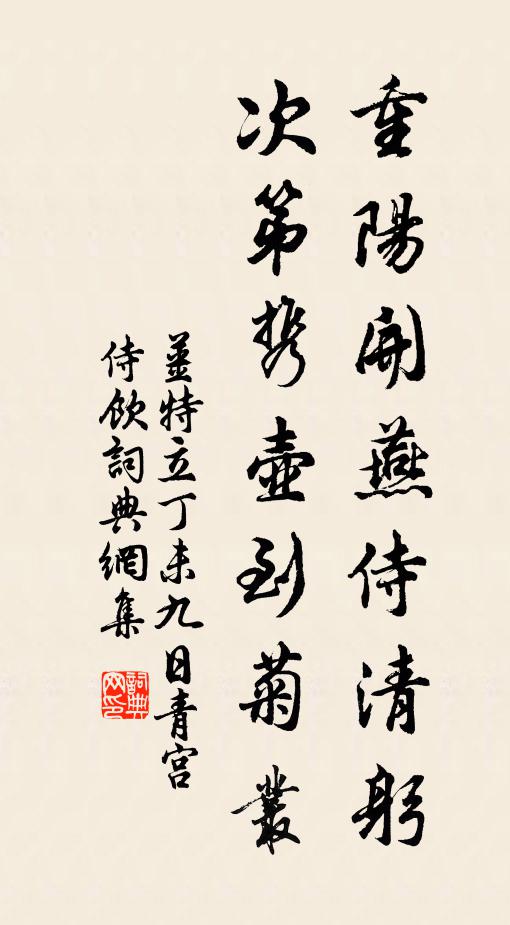 重陽開燕侍清躬
次第携壺到菊叢
姜特立丁未九日青宮
侍飲詞典網集
詞典網印